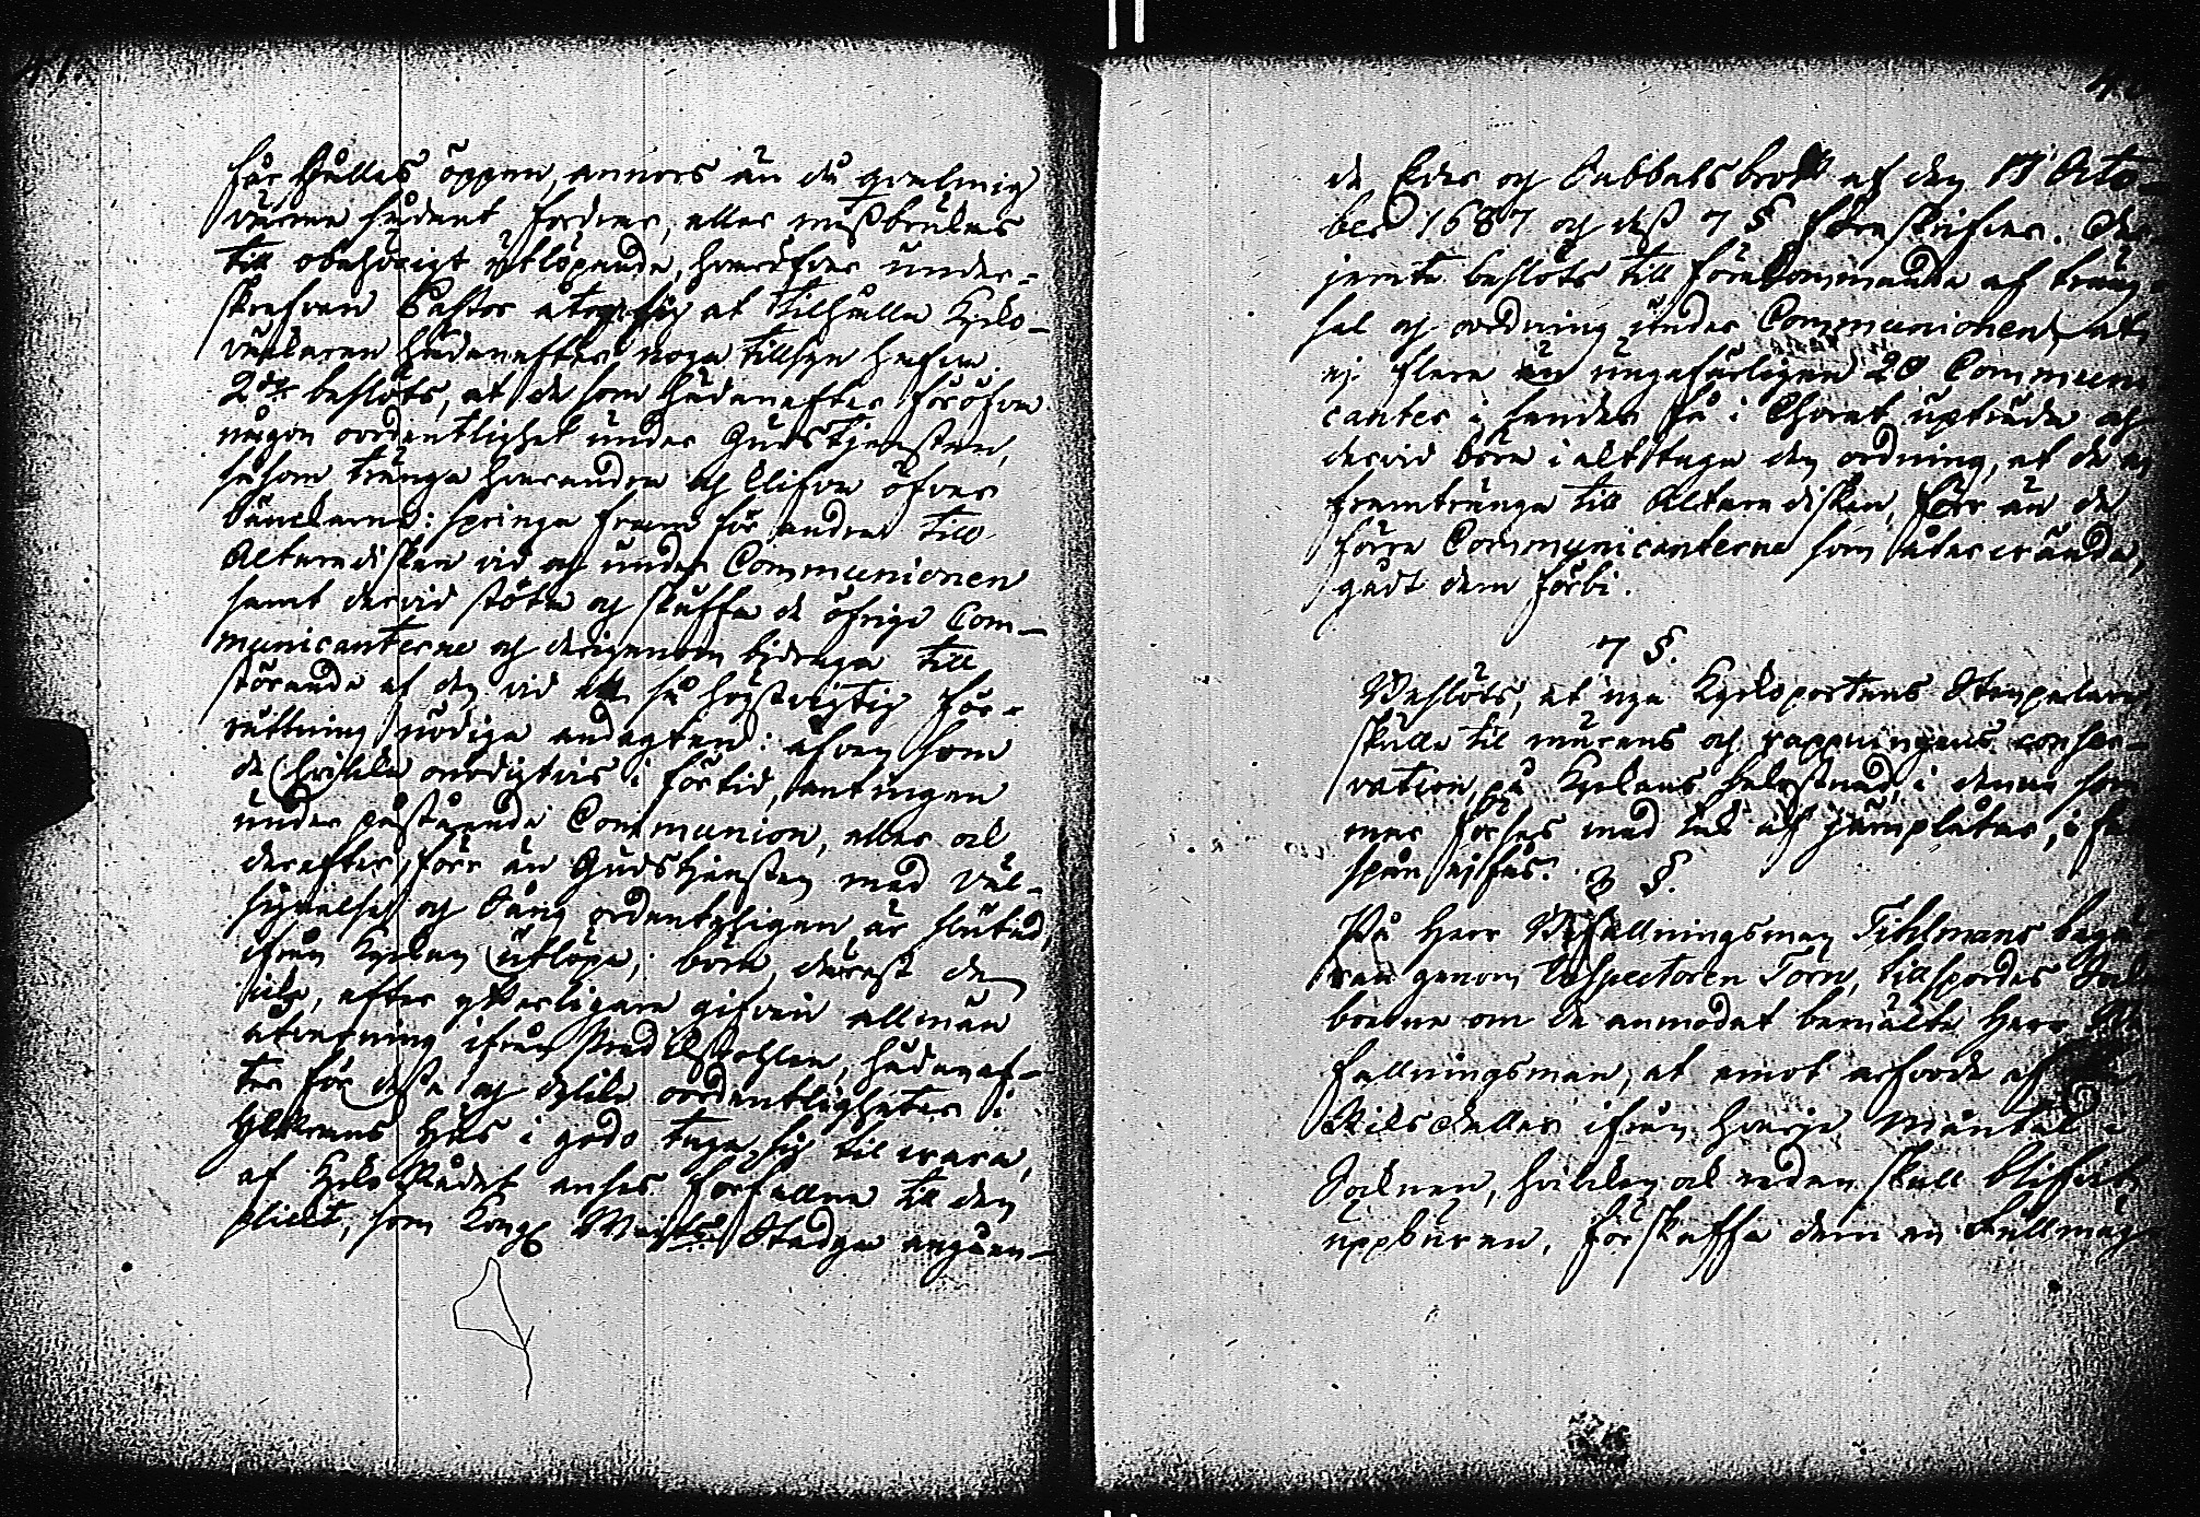 får hålles öppen, annors än då qvalmig
värme sådant fordrar, eller missbrukas
till obehörigt utlöpande, hvaröfver under-
skrefven Pastor åtog sig at tilhålla Kyrko-
väktaren hädanefter noga tillsyn hafva.
2:dre beslöts, at de som hädanefter föröfva
någon oordentlighet under Gudstjensten,
såsom tränga hvarandra och klifva öfver
bänckarne: springa fram för andra till
Altaredisken vid och under Communionen
samt dervid stöta och skuffa de öfrige Com-
municanterne och derigenom bidraga till
störande af den vid en så högstvigtig för-
rättning nödiga andagten: äfven som
de hvilka onödigtvis i förtid, antingen
under påstående Communion, eller ock
derefter, förr än Gudstjensten med Väl-
signelse och Sång ordenteligen är slutad,
ifrån Kyrkan utlöpa; böra, derest de
icke, efter ytterligare gifven allmän
åtvarning ifrån Predikstohlen, hädanef-
ter för desse och dylike oordentligheter i
Herrans Hus i godo taga sig til vara,
af Kyrko Rådet anses förfallne till den
plickt, som Kongl Maj:ts Stadga angåen-
de Eder och Sabbatsbrott af den 17 Octo-
ber 1687 och dess 7 § föreskrifver. Der
jemte beslöts till förekommande af träng-
sel och oordning under Communionen, at
ej flere än ungefärligen 20 Communi
canter i sender få i Choret upträda och
dervid böra i akt taga den ordning, at de ej
framtränga till Altaredisken, förr än de
förra Communicanterne som återvända,
gådt dem förbi.
7 §.
Beslöts, at nya Kyrkoportens Stenpelare
skulle til murens och rappningens conser-
vation, på Kyrkans bekostnad, i denna som
mar förses med tak af järnplåtar, i fall
spån ej fås.
8 §.
På Herr Befallningsman Tihlmans begä-
ran genom Inspectoren Törn, tillspordes Sock
boerne om de anmodat bemälte Herr Be
fallningsman, at emot arfvode af
Skils ifrån hvarje Mantal i
Socknen, hvilken ock redan skall blifvit
uppburen, förskaffa dem en Fullmäg